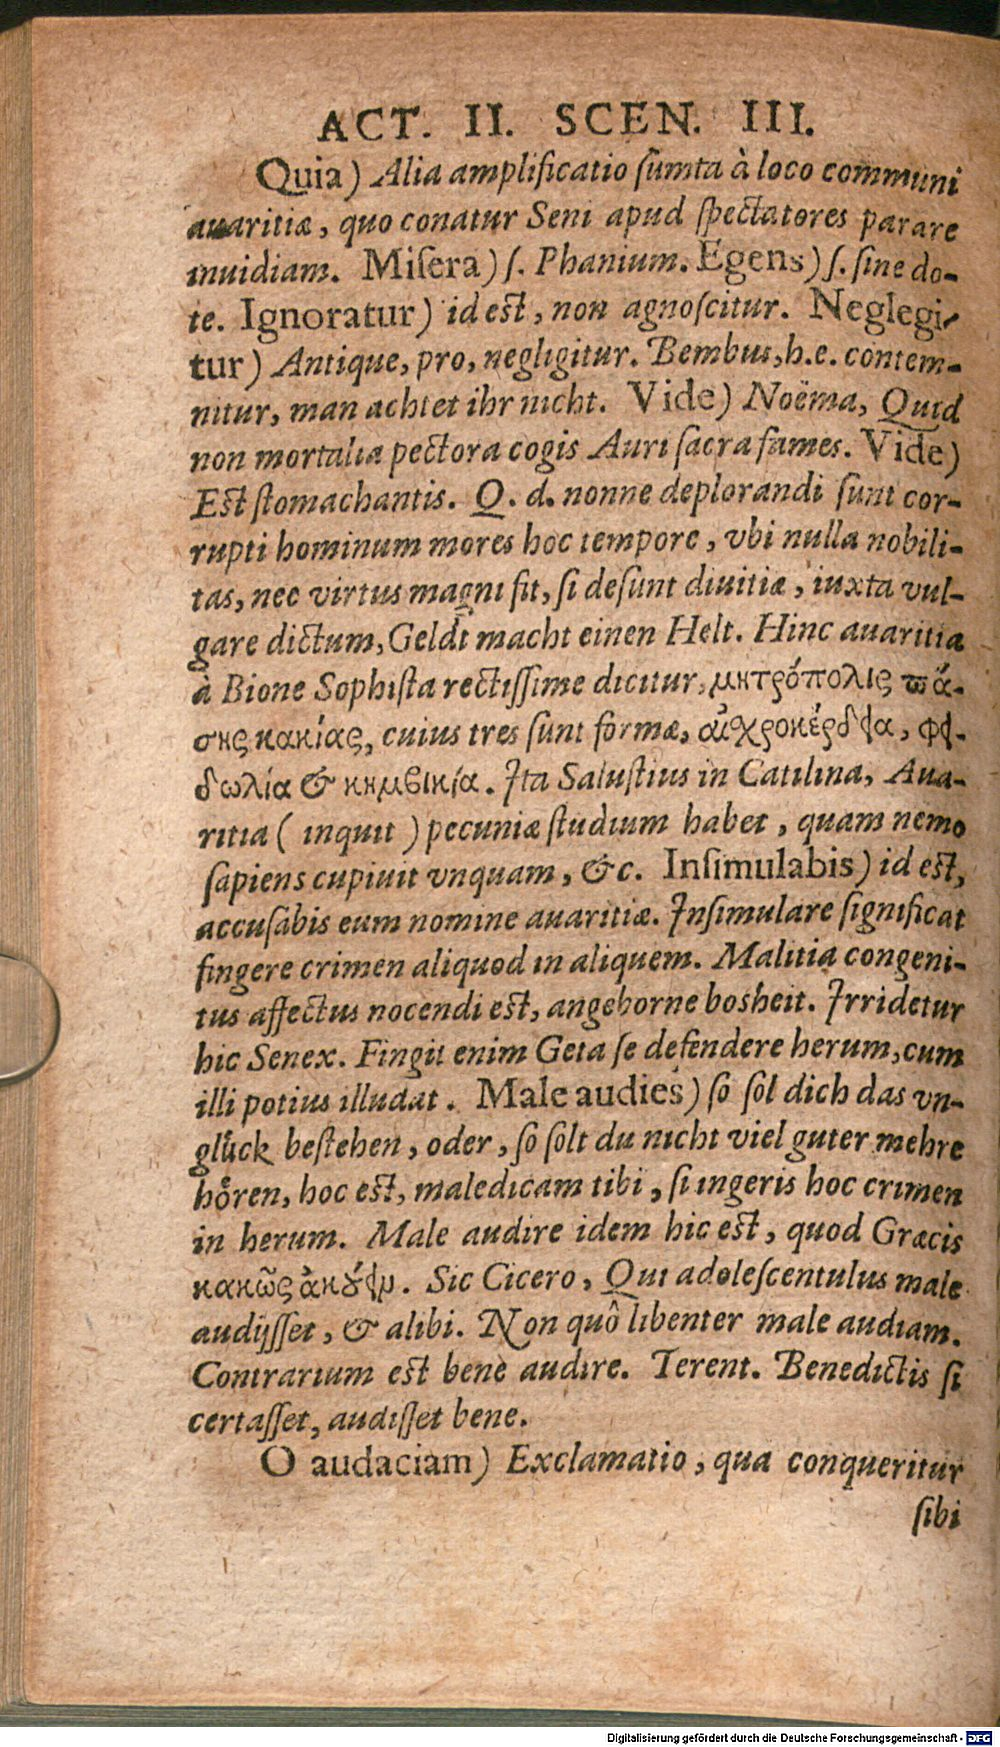 ACT. II. SCEN. III.
Quia) Alia amplificatio ſumta à loco communi
auaritiæ, quo conatur Seni apud ſpectatores parare
inuidiam. Miſera) ſ. Phanium. Egens) ſ. ſine do-
te. Ignoratur) id eſt, non agnoſcitur. Neglegi-
tur) Antique, pro, negligitur. Bembus, h.e. contem-
nitur, man achtet ihr nicht. Vide) Noëma, Quid
non mortalia pectora cogis Auri ſacra fames. Vide)
Eſt ſtomachantis. Q. d. nonne deplorandi ſunt cor-
rupti hominum mores hoc tempore, vbi nulla nobili-
tas, nec virtus magni fit, ſi deſunt diuitiæ, iuxta vul-
gare dictum, Geldt macht einen Helt. Hinc auaritia
à Bione Sophiſta rectiſſime dicitur, μητρόπολις πά-
σης κακίας, cuius tres ſunt formæ, αἰχροκέρδεια, φει-
δωλία & κημβικία. Ita Saluſtius in Catilina, Aua-
ritia ( inquit ) pecuniæ ſtudium habet, quam nemo
ſapiens cupiuit vnquam, &c. Inſimulabis) id eſt,
accuſabis eum nomine auaritiæ. Inſimulare ſignificat
fingere crimen aliquod in aliquem. Malitia congeni-
tus affectus nocendi eſt, angeborne bosheit. Irridetur
hic Senex. Fingit enim Geta ſe defendere herum, cum
illi potius illudat. Male audies) ſo ſol dich das vn-
glück beſtehen, oder, ſo ſolt du nicht viel guter mehre
hören, hoc eſt, maledicam tibi, ſi ingeris hoc crimen
in herum. Male audire idem hic eſt, quod Græcis
κακῶς ἀκούειν. Sic Cicero, Qui adoleſcentulus male
audijſſet, & alibi. Non quô libenter male audiam.
Contrarium eſt bene audire. Terent. Benedictis ſi
certaſſet, audiſſet bene.
O audaciam) Exclamatio, qua conqueritur
ſibi
Digitalisierung gefördert durch die Deutsche Forschungsgemeinschaft - DFG